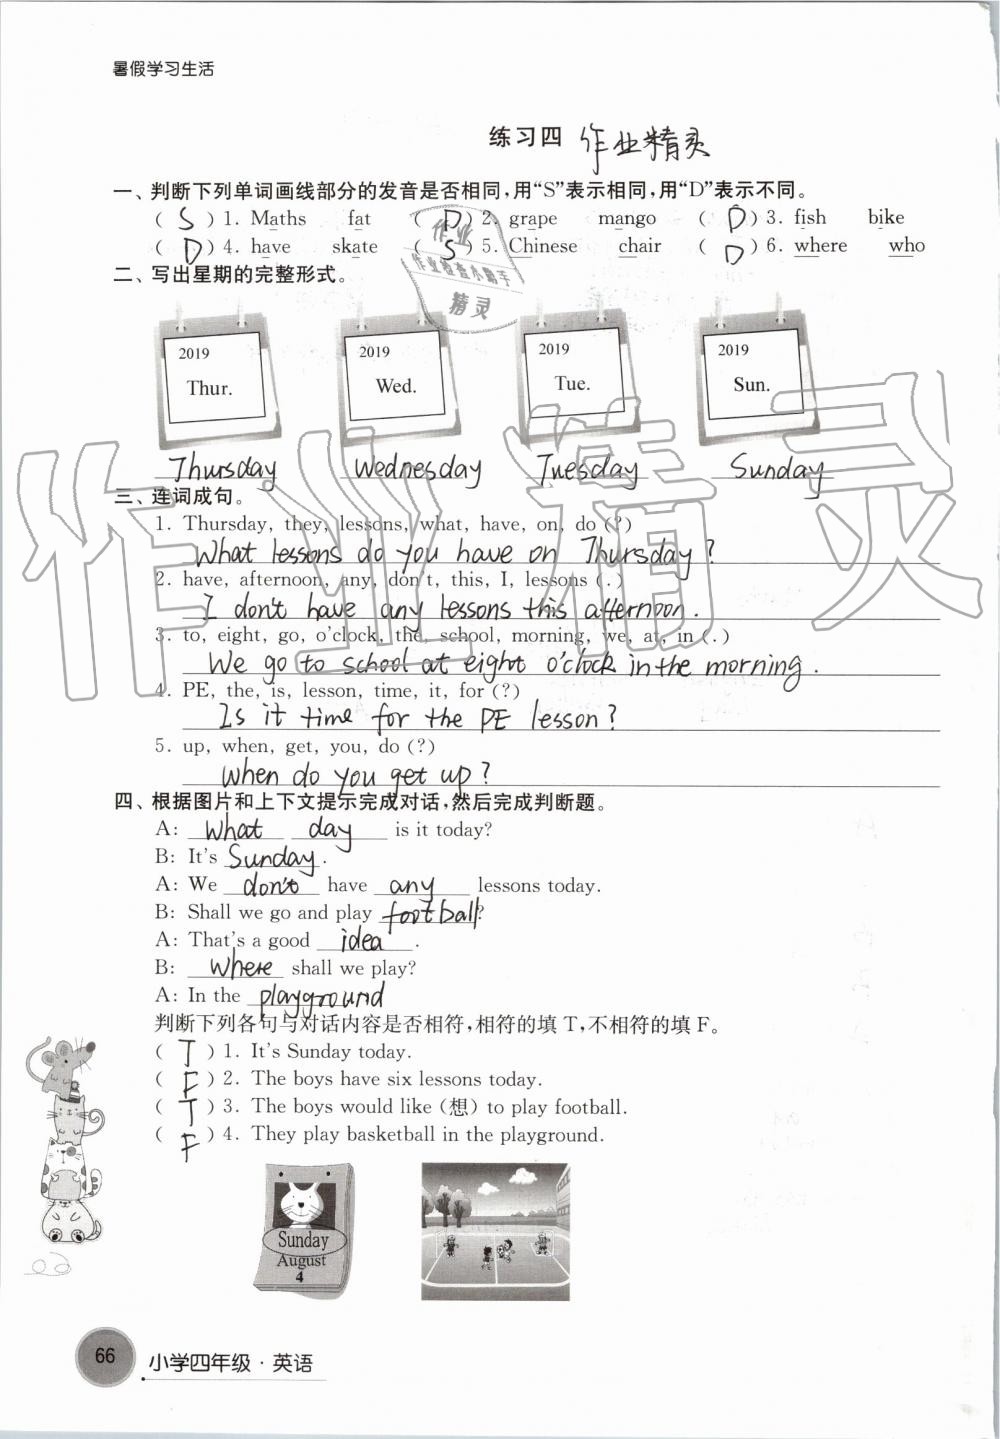 暑假学习生活
练习四 作业精灵
一、判断下列单词画线部分的发音是否相同,用“S”表示相同,用“D”表示不同。
( S ) 1. Maths fat ( D ) 2. grape mango ( D ) 3. fish bike
( D ) 4. have skate ( S ) 5. Chinese chair ( D ) 6. where who
二、写出星期的完整形式。
作业
作业检查小助手
精灵
2019 2019 2019 2019
Thur. Wed. Tue. Sun.
Thursday Wednesday Tuesday Sunday
作业精灵
三、连词成句。
1. Thursday, they, lessons, what, have, on, do (?)
What lessons do you have on Thursday?
2. have, afternoon, any, don't, this, I, lessons (.)
I don't have any lessons this afternoon.
3. to, eight, go, o'clock, the, school, morning, we, at, in (.)
We go to school at eight o'clock in the morning.
4. PE, the, is, lesson, time, it, for (?)
Is it time for the PE lesson?
5. up, when, get, you, do (?)
When do you get up?
四、根据图片和上下文提示完成对话,然后完成判断题。
A: What day is it today?
B: It's Sunday.
A: We don't have any lessons today.
B: Shall we go and play football?
A: That's a good idea.
B: Where shall we play?
A: In the playground
判断下列各句与对话内容是否相符,相符的填 T,不相符的填 F。
( T ) 1. It's Sunday today.
( F ) 2. The boys have six lessons today.
( T ) 3. The boys would like (想) to play football.
( F ) 4. They play basketball in the playground.
Sunday
August
4
66 小学四年级·英语